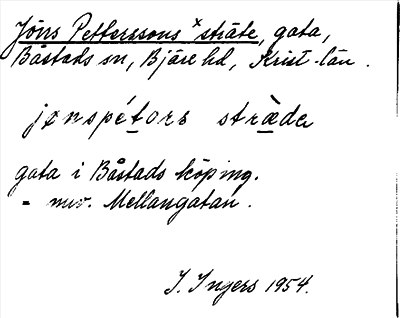 Jöns Petterssons ˣsträte, gata,
Båstads sn, Bjäre hd, Krist. län.
jønspétors stræ̀de
gata i Båstads köping.
= nuv. Mellangatan.
I. Ingers 1954.